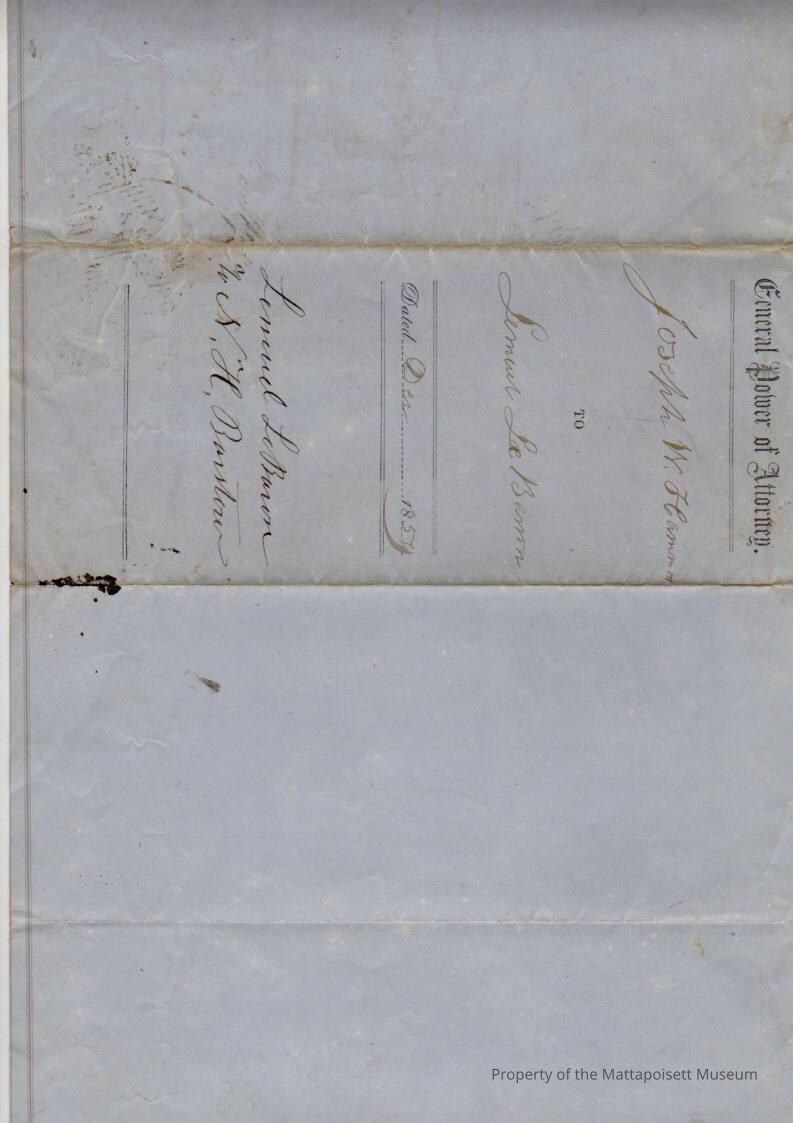 General Power of Attorney.
Joseph W. Hammond
TO
Lemuel Le Baron
Dated Dec 1854
Lemuel LeBaron
N. H. Barstow
Property of the Mattapoisett Museum